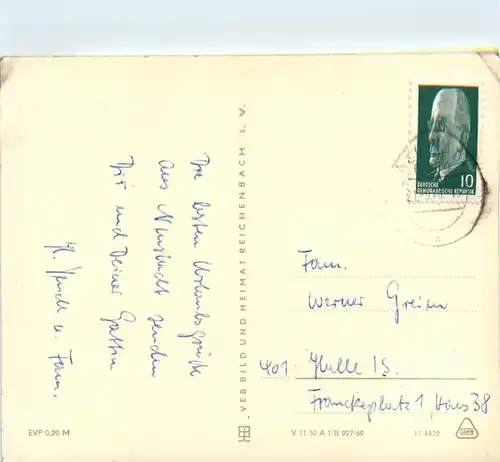 Die besten Urlaubsgrüße
aus Neustadt senden
Dir und Deiner Gattin
H. u. Fam.
VEB BILD UND HEIMAT REICHENBACH I. V.
10
DEUTSCHE
DEMOKRATISCHE REPUBLIK
Fam.
Werner Greim
401 Halle /S.
Franckeplatz 1, Haus 38
EVP 0,20 M
V 11 50 A 1/B 927/69
11-4422